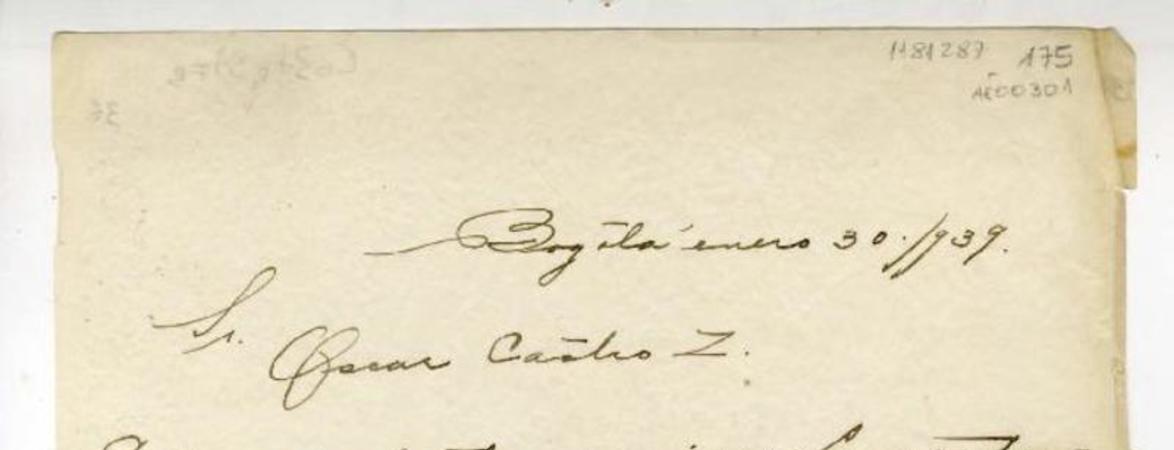 1181287 175
AE00301
Bogotá enero 30./939.
Sr.
Oscar Castro Z.